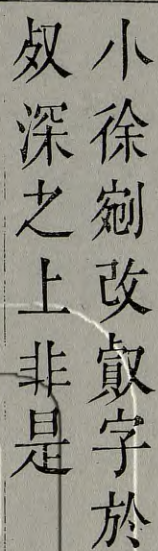 小徐剜改㕢字於
𣦻深之上非是